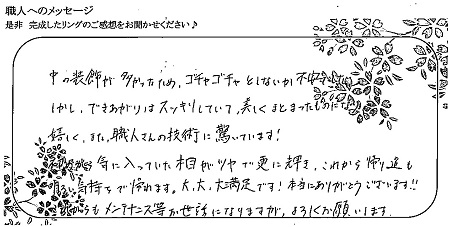 職人へのメッセージ
是非 完成したリングのご感想をお聞かせください♪
中の装飾が多かったため、ゴチャゴチャとしないか不安
しかし、できあがりはスッキリしていて、美しくまとまったものに
嬉しく、また、職人さんの技術に驚いています!
気に入っていた相がツヤで更に輝き、これから帰り道も
気持ちで帰れます。大、大、大満足です!本当にありがとうございます!!
メンテナンス等お世話になりますが、よろしくお願いします